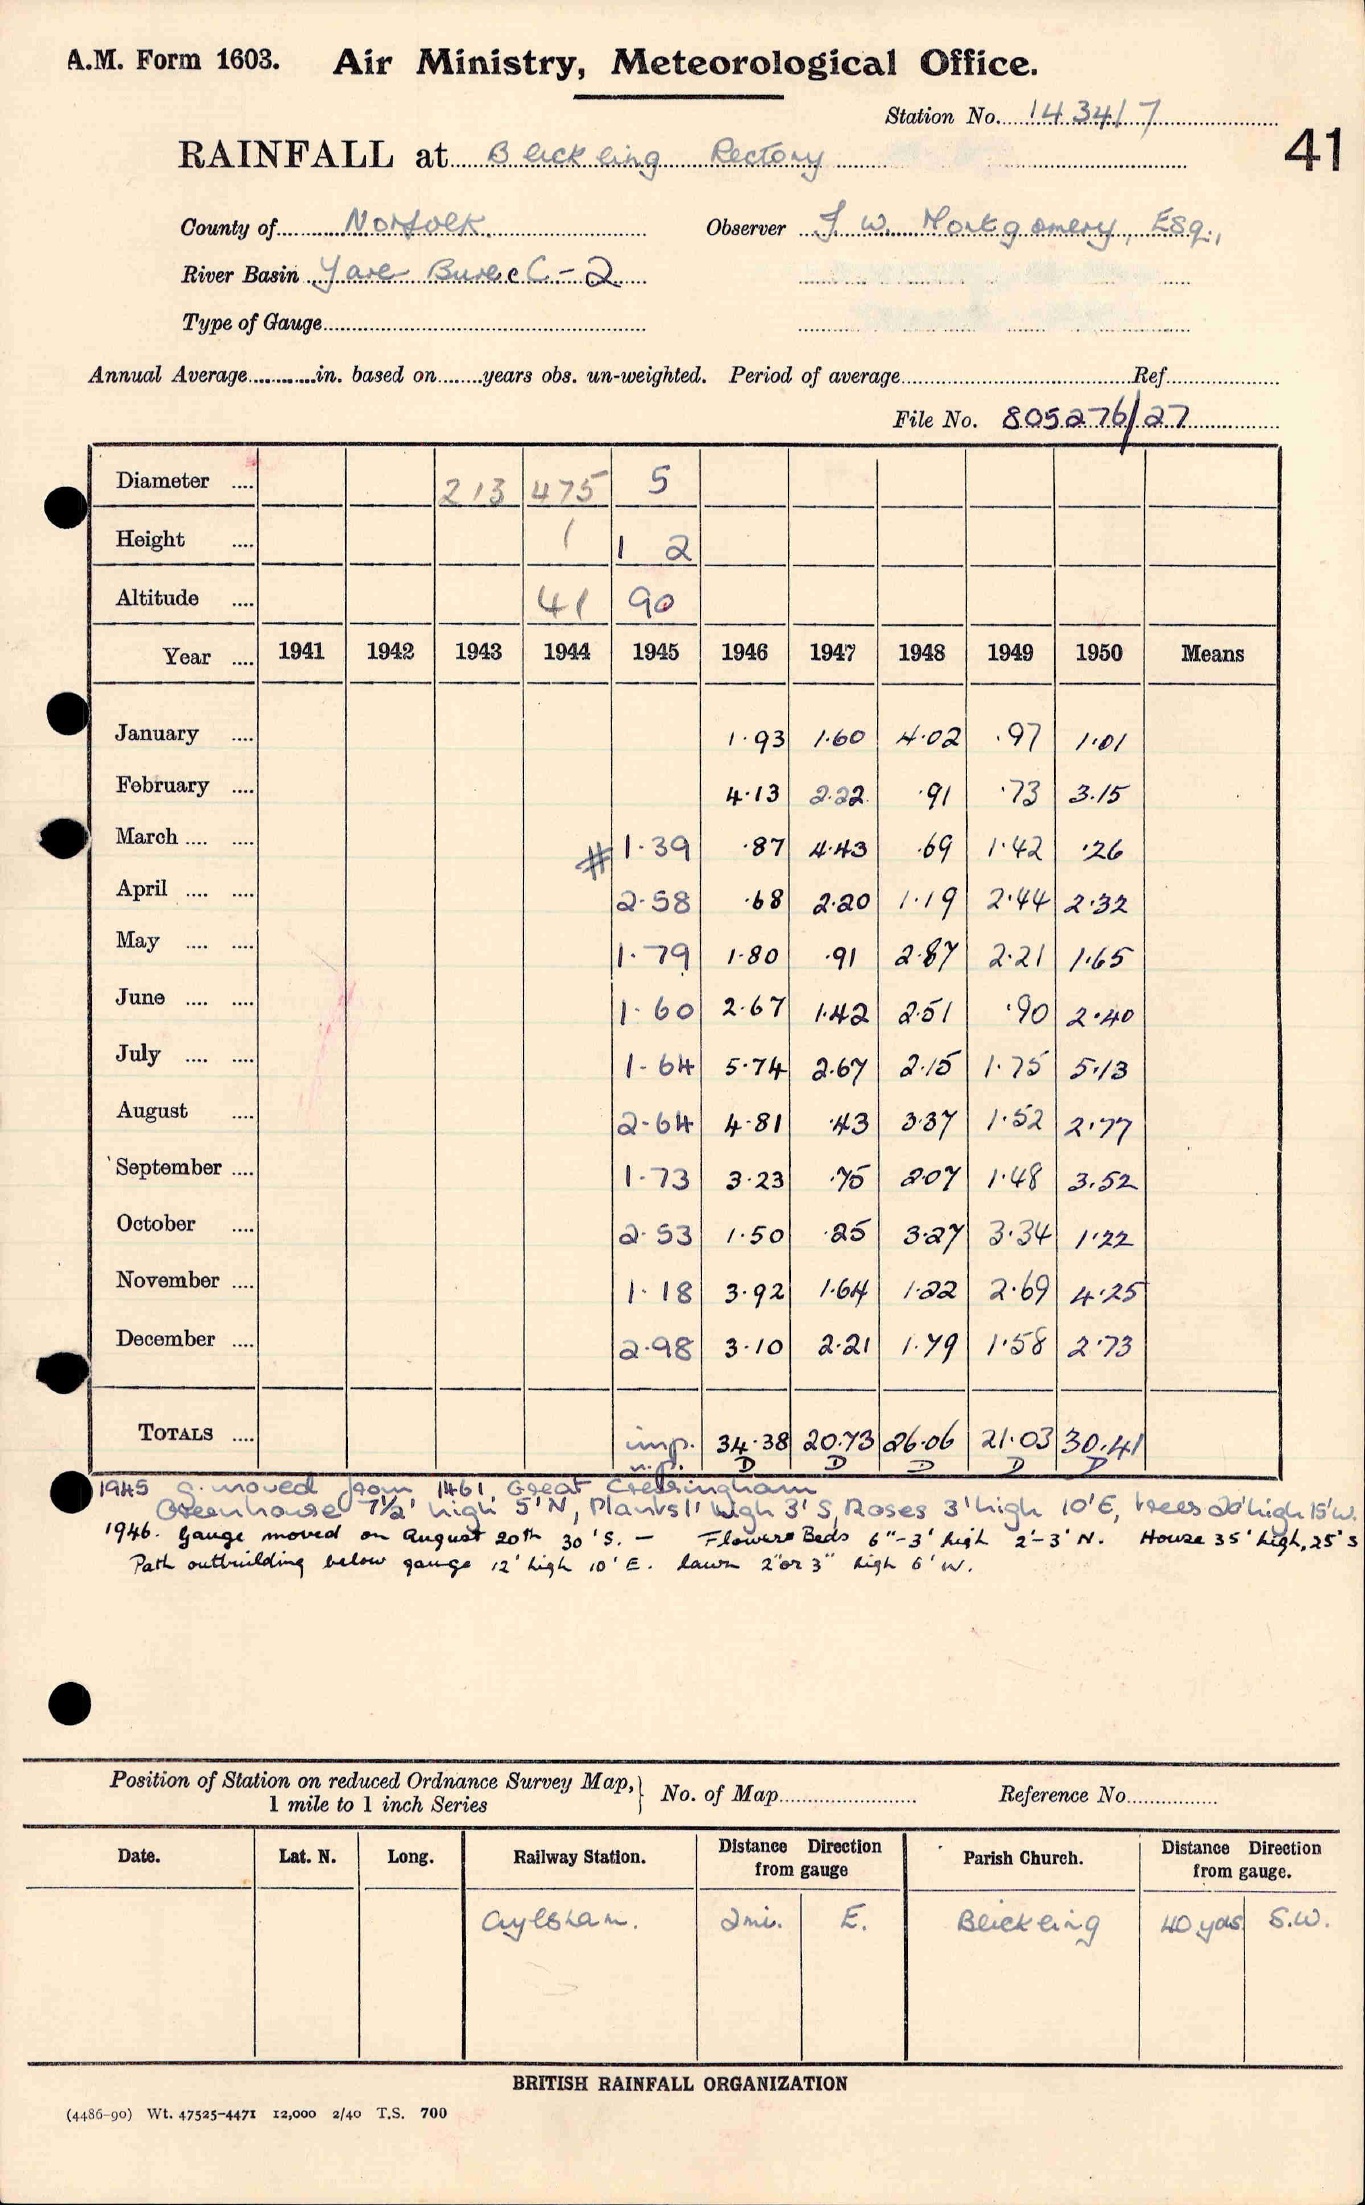 A.M. Form 1603. Air Ministry, Meteorological Office.
Station No. 1434/7
41
RAINFALL at Blickling Rectory
County of Norfolk. Observer J. W. Montgomery, Esq.,
River Basin Yare Bure &c C-2
Type of Gauge
Annual Average............in. based on........years obs. un-weighted. Period of average Ref.
File No. 805276/27
Diameter .... 213 475 5
Height .... 1 1 2
Altitude .... 41 90
Year .... 1941 1942 1943 1944 1945 1946 1947 1948 1949 1950 Means
January .... 1·93 1·60 4·02 ·97 1·01
February .... 4·13 2·22 ·91 ·73 3·15
March .... .... # 1·39 ·87 4·43 ·69 1·42 ·26
April .... .... 2·58 ·68 2·20 1·19 2·44 2·32
May .... .... 1·79 1·80 ·91 2·87 2·21 1·65
June .... .... 1·60 2·67 1·42 2·51 ·90 2·40
July .... .... 1·64 5·74 2·67 2·15 1·75 5·13
August .... 2·64 4·81 ·43 3·37 1·52 2·77
September .... 1·73 3·23 ·75 2·07 1·48 3·52
October .... 2·53 1·50 ·25 3·27 3·34 1·22
November .... 1·18 3·92 1·64 1·22 2·69 4·25
December .... 2·98 3·10 2·21 1·79 1·58 2·73
TOTALS .... imp. 34·38 20·73 26·06 21·03 30·41
n.p. D D D D D
1945 g. moved from 1461, Great Cressingham
Greenhouse 7½' high 5'N, Plants 1' high 3' S, Roses 3' high 10'E, trees 20' high 15'W.
1946. Gauge moved on August 20th 30'S. — Flower Beds 6"-3' high 2'-3' N. House 35' high, 25'S
Path outbuilding below gauge 12' high 10' E. lawn 2" or 3" high 6' W.
Position of Station on reduced Ordnance Survey Map, No. of Map Reference No.
1 mile to 1 inch Series
Date. Lat. N. Long. Railway Station. Distance Direction from gauge Parish Church. Distance Direction from gauge.
Aylsham. 2mi. E. Blickling 40 yds S.W.
BRITISH RAINFALL ORGANIZATION
(4486-90) Wt. 47525-4471 12,000 2/40 T.S. 700